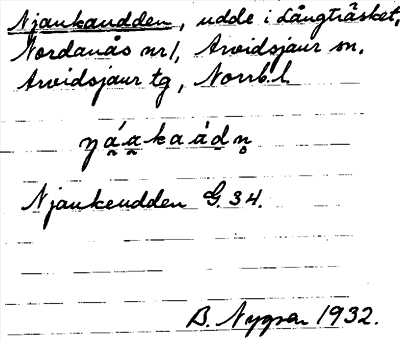 Njaukaudden, udde i Långträsket,
Nordanås nr 1, Arvidsjaur sn,
Arvidsjaur tg, Norrb. l.
Njaukeudden G. 34.
B. Nygren 1932.